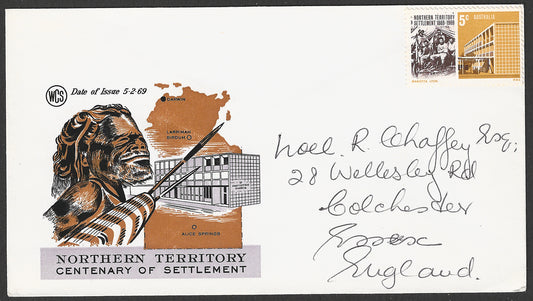 WCS
Date of Issue 5-2-69
DARWIN
LARRIMAH
BIRDUM
ALICE SPRINGS
NORTHERN TERRITORY
CENTENARY OF SETTLEMENT
NORTHERN TERRITORY
SETTLEMENT 1869-1969
5c
AUSTRALIA
Noel. R. Chaffey Esq;
28 Wellesley Rd
Colchester
Essex
England.